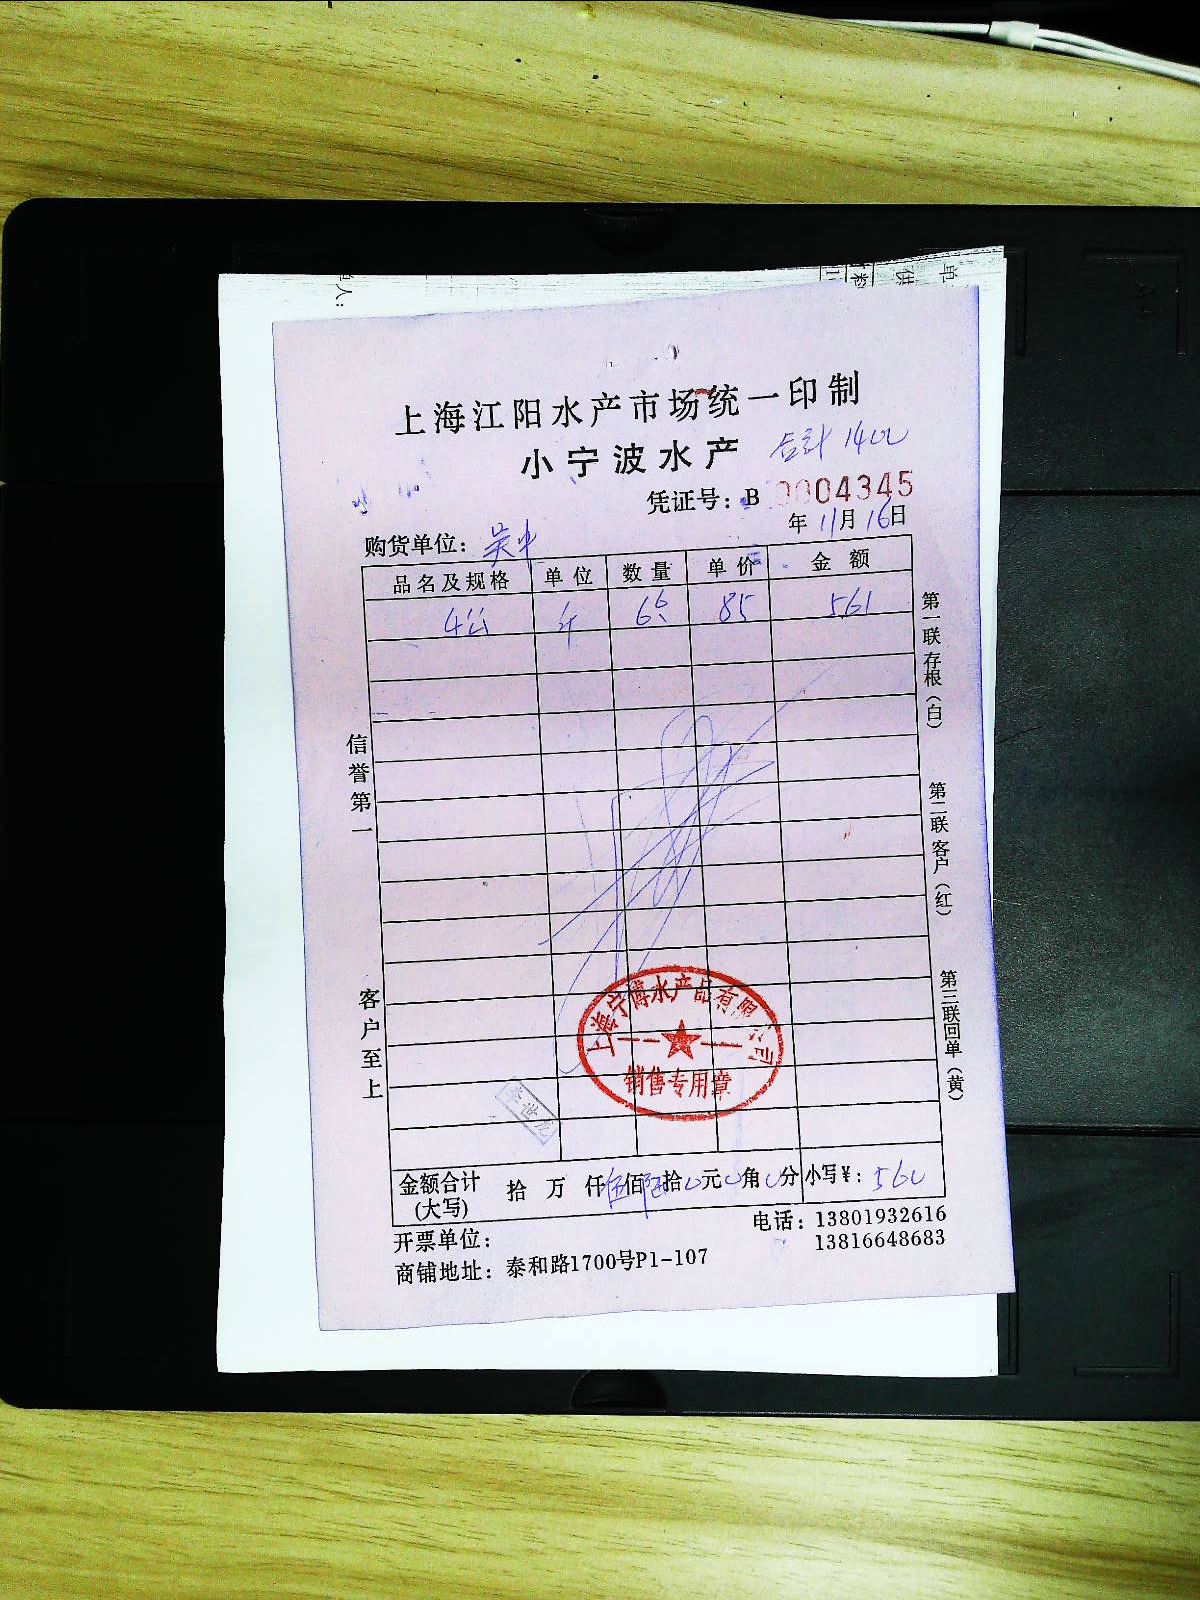 单
供
人:
上海江阳水产市场统一印制
小宁波水产
合计 1400
凭证号: B 0004345
年 11月 16日
购货单位: 吴中
品名及规格 单位 数量 单价 金额
4公 斤 66 85 561
信誉第一
客户至上
第一联 存根(白)
第二联 客户(红)
第三联 回单(黄)
上海宁博水产品有限公司
销售专用章
李世龙
金额合计(大写) 拾 万 仟伍佰陆拾0元0角0分 小写¥: 560
开票单位:
电话: 13801932616
13816648683
商铺地址: 泰和路1700号P1-107